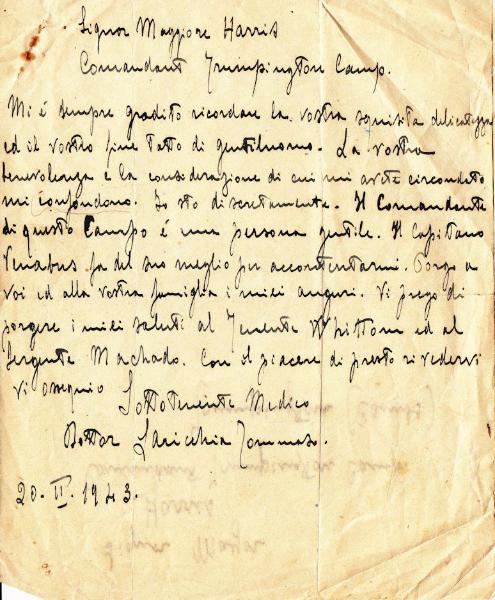 Signor Maggiore Harris
Comandant Trumpington Camp.
Mi é sempre gradito ricordare la vostra squisita delicatezza
ed il vostro fine tatto di gentiluomo. La vostra
benevolenza e la considerazione di cui mi avete circondato
mi confondono. Io sto discretamente. Il Comandante
di questo Campo é una persona gentile. Il Capitano
Venabus fa del suo meglio per accontentarmi. Porgo a
voi ed alla vostra famiglia i miei auguri. Vi prego di
porgere i miei saluti al Tenente ed al
Sergente Machado. Con il piacere di presto rivedervi
vi ossequio
Sottotenente Medico
Dottor Laricchia Tommaso.
20. II. 1943.